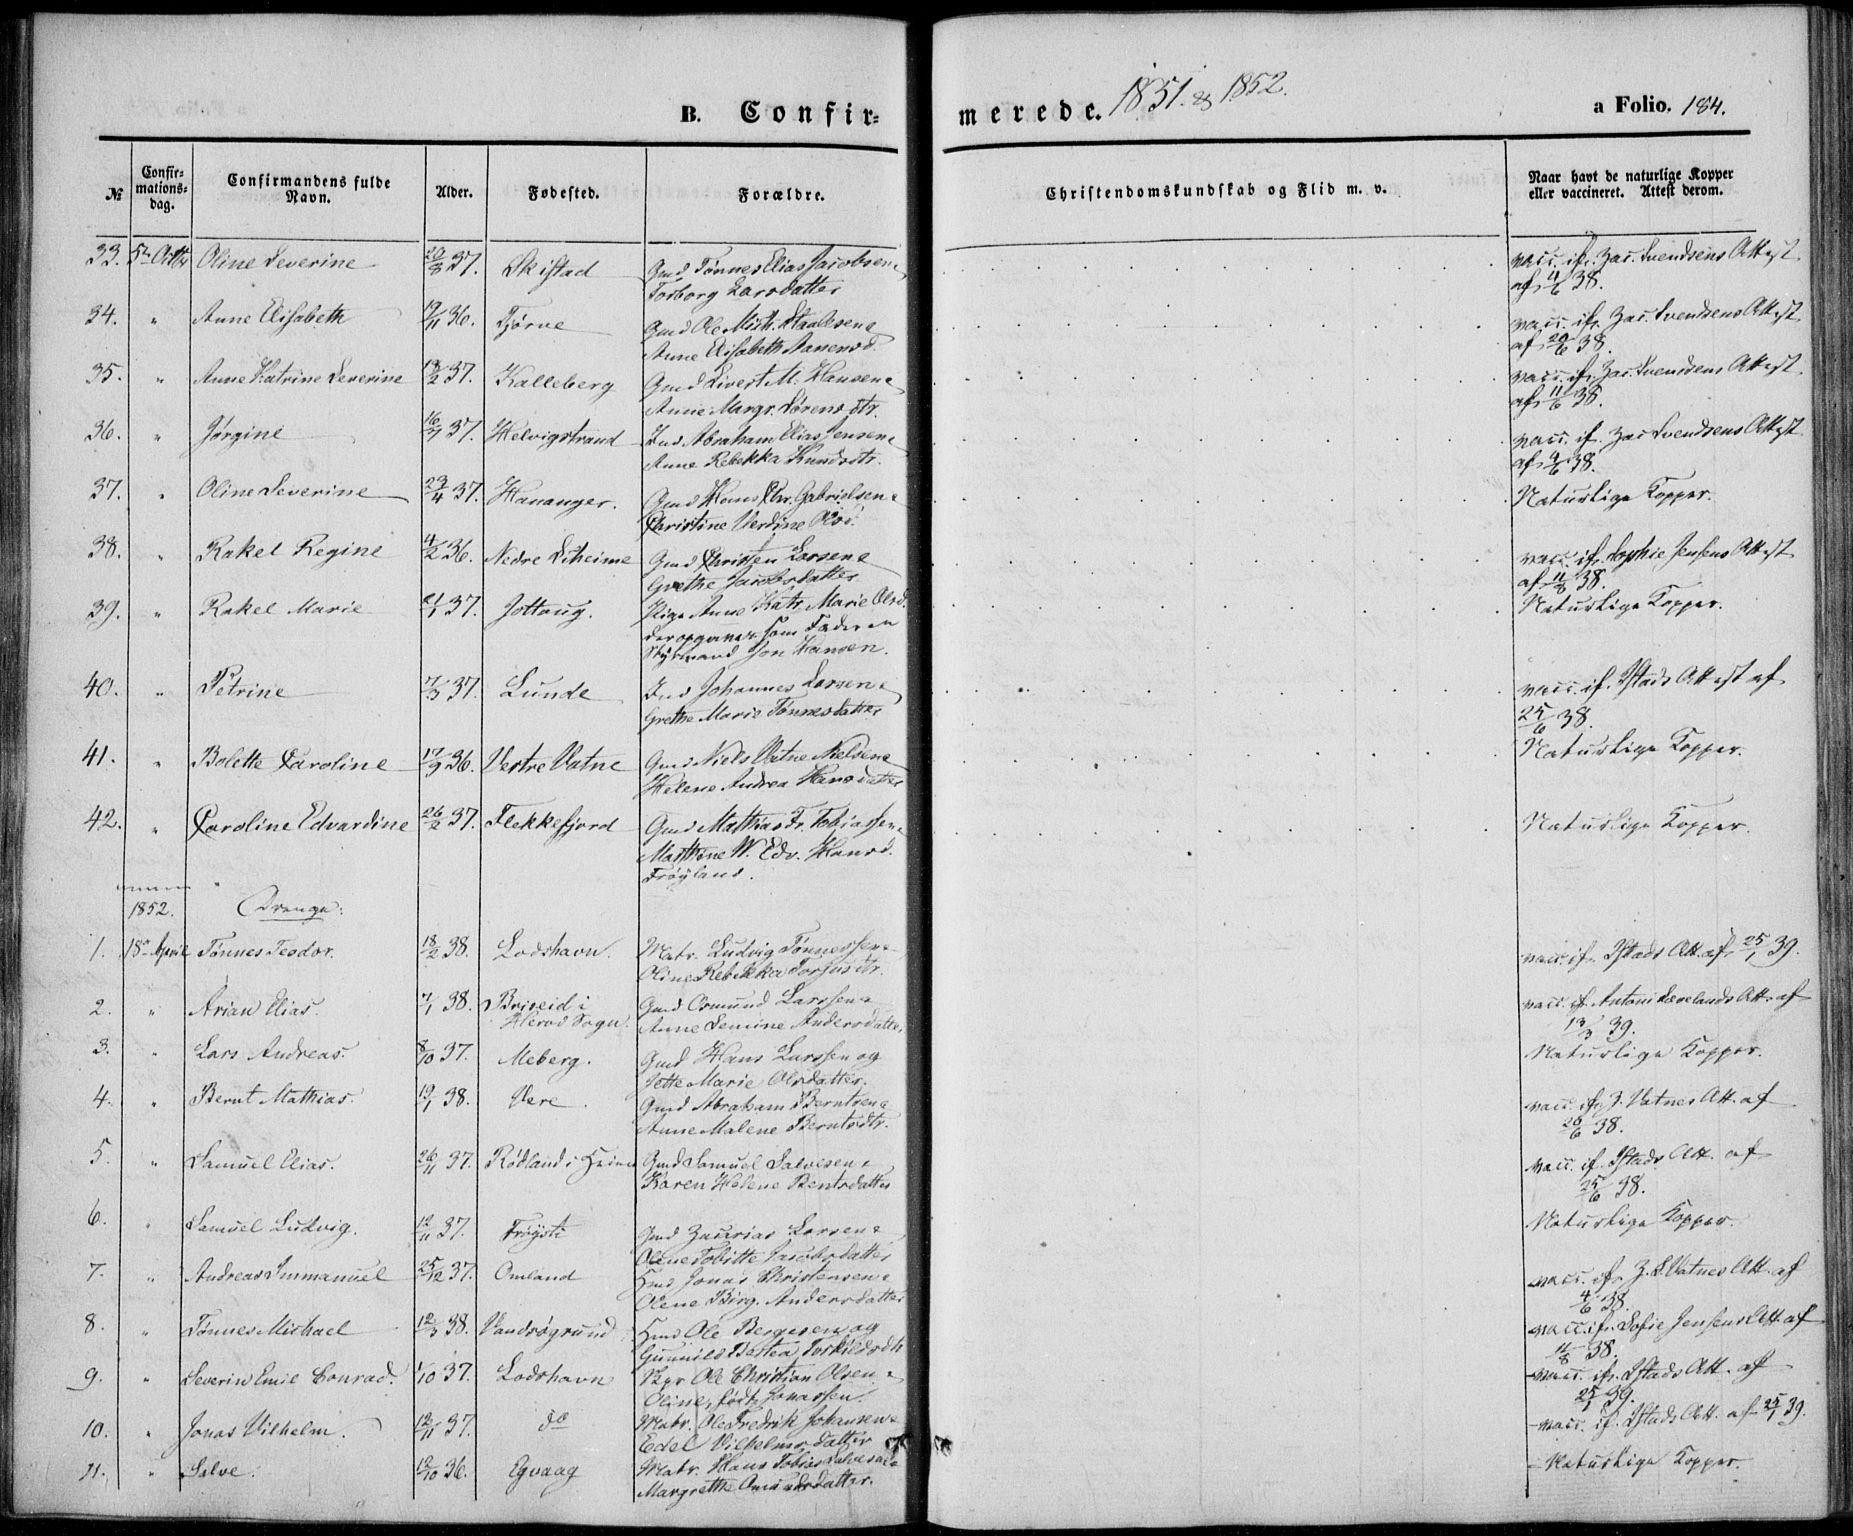 B. Confir=
merede. 1851 & 1852.
a Folio. 184.
№
Confir=
mations=
dag.
Confirmandens fulde
Navn.
Alder.
Fødested.
Forældre.
Christendomskundskab og Flid m. v.
Naar havt de naturlige Kopper
eller vaccineret. Attest derom.
33. Oline Severine 20/8 37. Skistad Gmd Tønnes Elias Jacobsen &
Torborg Larsdatter
vacc. if. Zac. Svendsens Attest
af 11/6 38.
34. " Anne Elisabeth 19/11 36. Tjørve Gmd Ole
Anne Elisabeth Aanensd.
vacc. if. Zac. Svendsens Attest
af 20/6 38.
35. " Anne Katrine Severine 19/2 37. Kalleberg Gmd Sivert M. Hansen &
Anne Margr. Sørensdtr.
vacc. if. Zac. Svendsens Attest
af 11/6 38.
36. " Jørgine 16/7 37. Helvigstrand Inds Abraham Elias Jensen &
Anne Rebekka Knudsdtr.
vacc. if. Zac Svendsens Attest
af 9/6 38.
37. " Oline Severine 23/4 37. Hananger. Gmd Hans Chr. Gabrielsen &
Christine Verdine Olsd.
Naturlige Kopper.
38. " Rakel Regine 4/2 36. Nedre Eitheime Gmd Christen Larsen &
Grethe Jacobsdatter
vacc. if. Sophie Jensens Attest
af 11/8 38.
39. " Rakel Marie 21/1 37. Jottaug. Pige Anne Katr. Marie Olsd.
der opgiver som Fader en
Styrmand Jon Hansen.
Naturlige Kopper.
40. " Petrine 7/3 37. Lunde Inds Johannes Larsen &
Grethe Marie Tønnesdatter
vacc. if. Ystads Attest af
25/6 38.
41. " Bolette Caroline 17/9 36. Vestre Vatne Gmd Niels Vatne Nielsen &
Helene Andrea Hansdatter
Naturlige Kopper.
42. " Caroline Edvardine 26/2 37. Flekkefjord Gmd Mathias Fr. Tobiassen &
Marthine W. Edv. Hansd.
Frøyland.
Naturlige Kopper.
1852. Drenge:
1. 18de April Tønnes Teodor. 18/2 38. Lodshavn. Matr. Ludvig Tønnessen &
Oline Rebekka Torjusdtr.
vacc. if. Ystads Att. af 25/1 39.
2. " Arian Elias. 7/1 38. Briseid i
Herod Sogn. Gmd Osmund Larssen &
Anne Semine Andersdatter
vacc. if. Antoni Lævelands Att. af
13/3 39.
3. " Lars Andreas. 8/10 37. Meberg. Gmd Hans Larssen og
Jette Marie Olsdatter.
Naturlige Kopper.
4. " Bernt Mathias. 19/1 38. Vere. Gmd Abraham Berntsen &
Anne Malene Berntsdtr.
vacc. if. Z. Vatnes Att. af
20/6 38.
5. " Samuel Elias. 26/11 37. Rødland i Gmd Samuel Salvesen &
Karen Helene Bentsdatter
vacc. if. Ystads Att. af
25/6 38.
6. " Samuel Ludvig. 12/11 37. Frøysti Gmd Zacarias Larsen &
Olene Tobitte Jacobsdatter
Naturlige Kopper.
7. " Andreas Immanuel 25/12 37. Omland Hmd Jonas Christensen &
Olene Birg. Andersdatter
vacc. if. Z. S. Vatnes Att. af
4/6 38.
8. " Tønnes Michael 12/3 38. Vandrøgrund Hmd Ole Bergesen og
Gunnild Bertea Torkildsdtr
vacc. if. Sofie Jensens Att. af
11/8 38.
9. " Severin Emil Conrad. 1/10 37. Lodshavn Kpr Ole Christian Olsen &
Oline, født Jonassen.
vacc. if. Ystads Att. af
25/1 39.
10. " Jonas Vilhelm. 12/11 37. do Matr. Ole Fredrik Johansen &
Edel Vilhelmsdatter
vacc. if. Ystads Att. af 25/1 39.
11. " Salve. 12/10 36. Egvaag Matr. Hans Tobias Salvesen &
Margrethe Omundsdatter.
Naturlige Kopper.